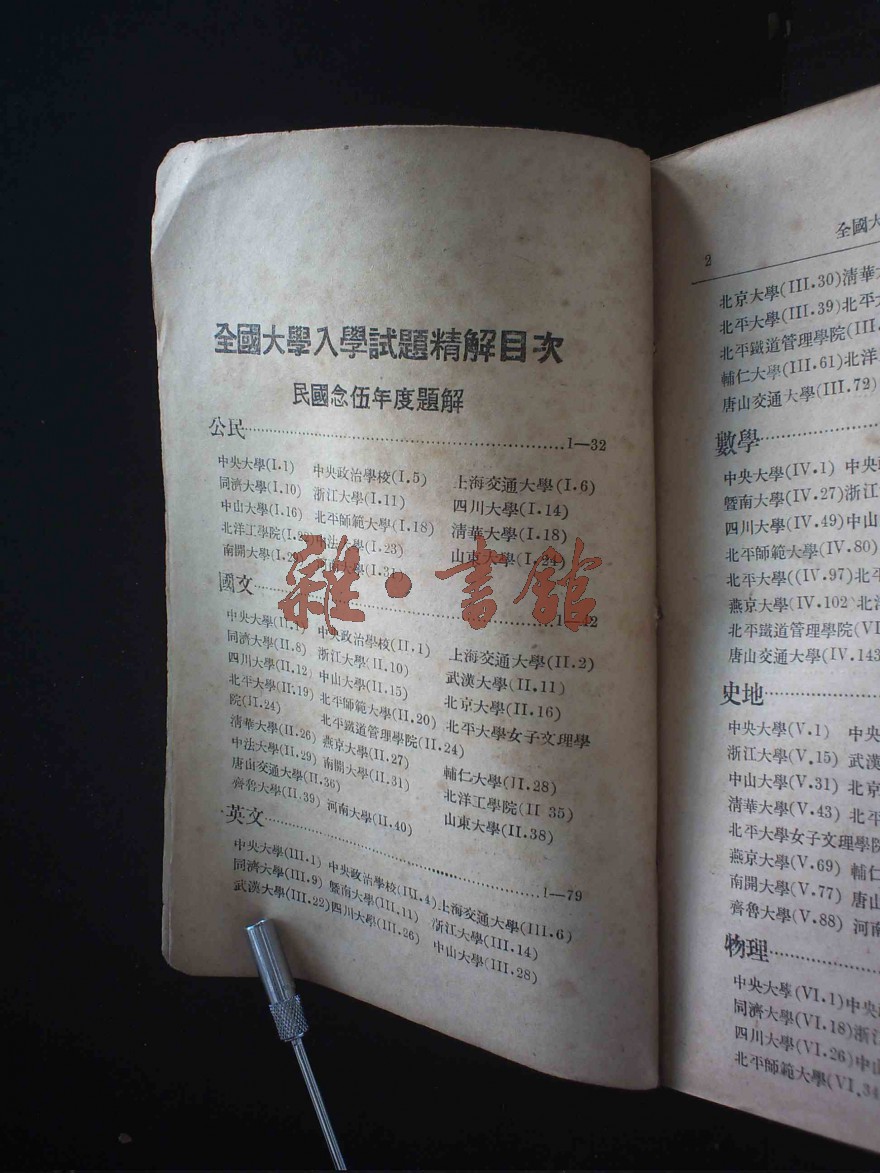 全國大學入學試題精解目次
民國念伍年度題解
公民……1—32
中央大學(I.1) 中央政治學校(I.5) 上海交通大學(I.6)
同濟大學(I.10) 浙江大學(I.11) 四川大學(I.14)
中山大學(I.16) 北平師範大學(I.18) 清華大學(I.18)
北洋工學院 中法大學(I.23) 山東大學(I.24)
南開大學 大學(I.31)
國文……
中央大學(II.1) 中央政治學校(II.1) 上海交通大學(II.2)
同濟大學(II.8) 浙江大學(II.10) 武漢大學(II.11)
四川大學(II.12) 中山大學(II.15) 北京大學(II.16)
北平大學(II.19) 北平師範大學(II.20) 北平大學女子文理學
院(II.24) 北平鐵道管理學院(II.24)
清華大學(II.26) 燕京大學(II.27) 輔仁大學(II.28)
中法大學(II.29) 南開大學(II.31) 北洋工學院(II 35)
唐山交通大學(II.36) 山東大學(II.38)
齊魯大學(II.39) 河南大學(II.40)
英文……1—79
中央大學(III.1) 中央政治學校(III.4) 上海交通大學(III.6)
同濟大學(III.9) 暨南大學(III.11) 浙江大學(III.14)
武漢大學(III.22) 四川大學(III.26) 中山大學(III.28)
雜·書館
2 全國大
北京大學(III.30)清華
北平大學(III.39)北平
北平鐵道管理學院(III.
輔仁大學(III.61)北洋
唐山交通大學(III.72)
數學……
中央大學(IV.1) 中央
暨南大學(IV.27)浙江
四川大學(IV.49)中山
北平師範大學(IV.80)
北平大學((IV.97)北平
燕京大學(IV.102)北洋
北平鐵道管理學院(VI
唐山交通大學(IV.143
史地……
中央大學(V.1) 中央
浙江大學(V.15) 武漢
中山大學(V.31) 北京
清華大學(V.43) 北平
北平大學女子文理學院
燕京大學(V.69) 輔仁
南開大學(V.77) 唐山
齊魯大學(V.88) 河南
物理……
中央大學(VI.1)中央
同濟大學(VI.18)浙江
四川大學(VI.26)中山
北平師範大學(VI.34